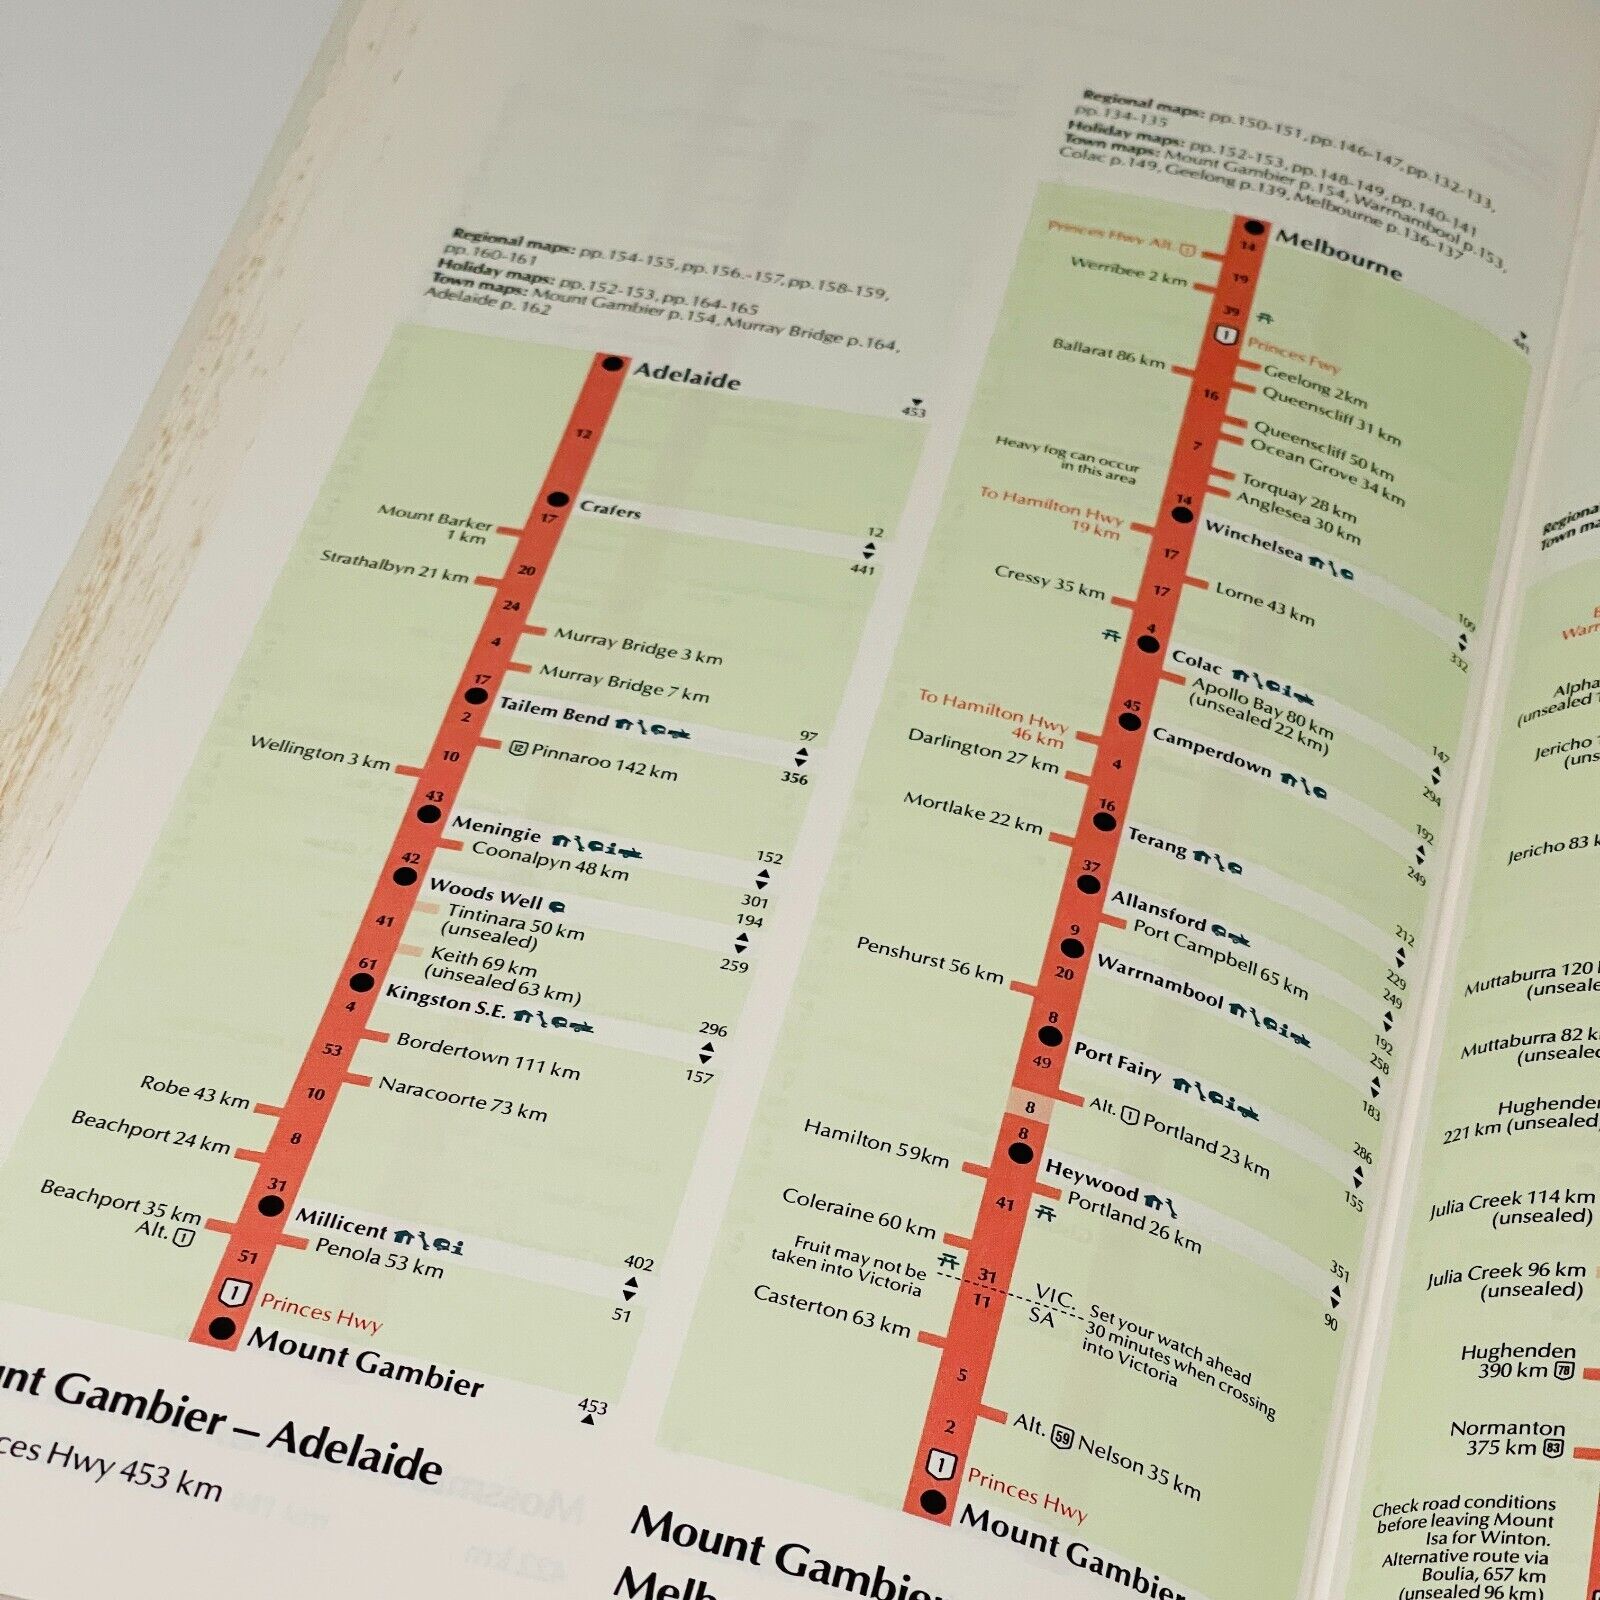 Regional maps: pp.154-155, pp.156.-157, pp.158-159,
pp.160-161
Holiday maps: pp.152-153, pp.164-165
Town maps: Mount Gambier p.154, Murray Bridge p.164,
Adelaide p. 162
Adelaide
453
12
Crafers
12
441
17
Mount Barker
1 km
20
Strathalbyn 21 km
24
Murray Bridge 3 km
4
Murray Bridge 7 km
17
Tailem Bend
97
356
2
12 Pinnaroo 142 km
10
Wellington 3 km
43
Meningie
152
301
Coonalpyn 48 km
42
Woods Well
194
259
Tintinara 50 km
(unsealed)
41
Keith 69 km
(unsealed 63 km)
61
Kingston S.E.
296
157
4
Bordertown 111 km
53
Naracoorte 73 km
10
Robe 43 km
8
Beachport 24 km
31
Millicent
402
51
Beachport 35 km
Alt. 1
Penola 53 km
51
1 Princes Hwy
Mount Gambier
453
nt Gambier – Adelaide
ces Hwy 453 km
Regional maps: pp.150-151, pp.146-147, pp.132-133,
pp.134-135
Holiday maps: pp.152-153, pp.148-149, pp.140-141
Town maps: Mount Gambier p.154, Warrnambool p.153,
Colac p.149, Geelong p.139, Melbourne p.136-137
Melbourne
441
14
Princes Hwy Alt. 1
19
Werribee 2 km
39
1 Princes Fwy
Geelong 2km
Ballarat 86 km
Queenscliff 31 km
16
Queenscliff 50 km
Ocean Grove 34 km
7
Heavy fog can occur
in this area
Torquay 28 km
Anglesea 30 km
14
Winchelsea
109
332
To Hamilton Hwy
19 km
17
Lorne 43 km
17
Cressy 35 km
4
Colac
147
294
Apollo Bay 80 km
(unsealed 22 km)
45
Camperdown
192
249
To Hamilton Hwy
46 km
4
Darlington 27 km
16
Terang
212
229
Mortlake 22 km
37
Allansford
249
192
Port Campbell 65 km
9
Warrnambool
258
183
20
Penshurst 56 km
8
Port Fairy
286
155
49
Alt. 1 Portland 23 km
8
8
Heywood
351
90
Hamilton 59km
Portland 26 km
41
Coleraine 60 km
31
Fruit may not be
taken into Victoria
VIC.
SA
Set your watch ahead
30 minutes when crossing
into Victoria
11
Casterton 63 km
5
Alt. 59 Nelson 35 km
2
1 Princes Hwy
Mount Gambier
Mount Gambier
Melb
Regiona
Town ma
Warr
Alpha
(unsealed 1
Jericho 1
(uns
Jericho 83 k
Muttaburra 120
(unseale
Muttaburra 82 k
(unsealed
Hughenden
221 km (unsealed
Julia Creek 114 km
(unsealed)
Julia Creek 96 km
(unsealed)
Hughenden
390 km 78
Normanton
375 km 83
Check road conditions
before leaving Mount
Isa for Winton.
Alternative route via
Boulia, 657 km
(unsealed 96 km)